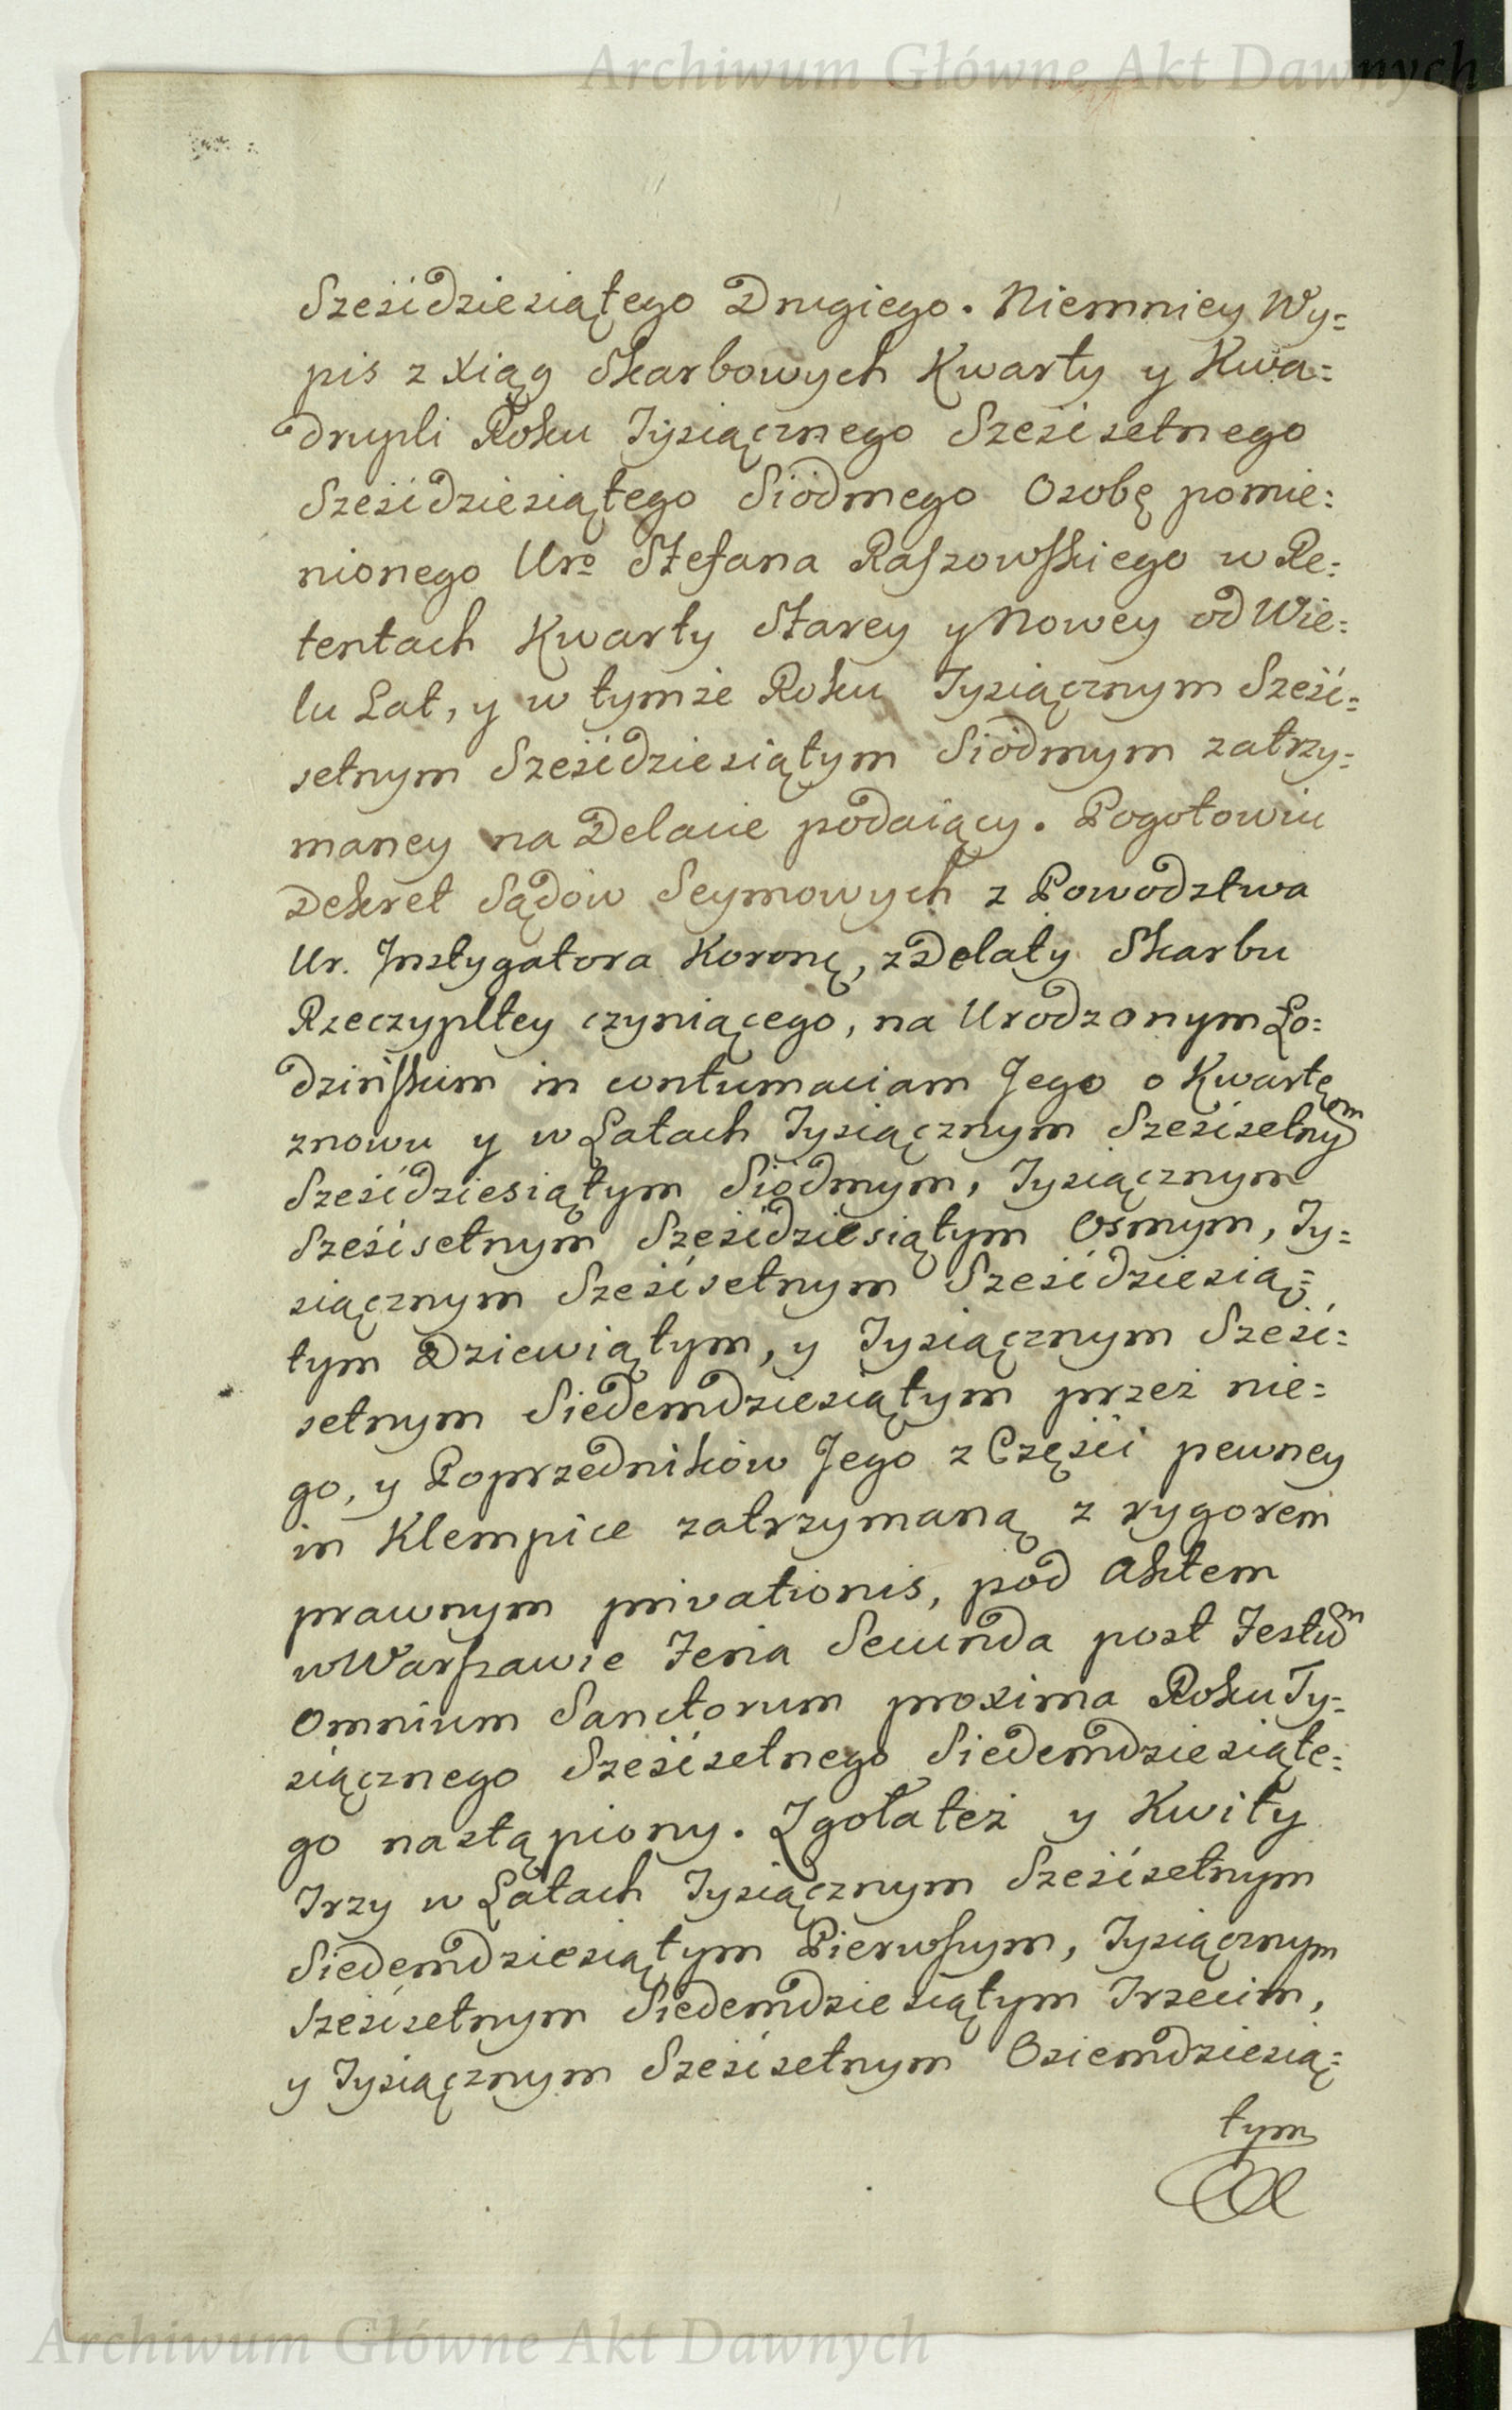 Archiwum Główne Akt Dawnych
Sześćdziesiątego Drugiego. Niemniey Wy=
pis z Xiąg Skarbowych Kwarty y Kwa=
drupli Roku Tysiącznego Sześćsetnego
Sześćdziesiątego Siódmego Osobę pomie=
nionego Uro Stefana Raszowskiego w Re=
tentach Kwarty Starey y Nowey od Wie=
lu Lat, y w tymże Roku Tysiącznym Sześć=
setnym Sześćdziesiątym Siódmym zatrzy=
maney na Delacie podaiący. Pogotowiu
Dekret Sądów Seymowych z Powodztwa
Ur. Instygatora Koronę, z Delaty Skarbu
Rzeczypltey czyniącego, na Urodzonym Ło=
dzińskim in contumaciam Jego o Kwartę
znowu y w Latach Tysiącznym Sześćsetnym
Sześćdziesiątym Siódmym, Tysiącznym
Sześćsetnym Sześćdziesiątym Osmym, Ty=
siącznym Sześćsetnym Sześćdziesią=
tym Dziewiątym, y Tysiącznym Sześć=
setnym Siedemdziesiątym przez nie=
go, y Poprzedników Jego z Części pewney
in Klempice zatrzymaną z rygorem
prawnym privationis, pod Aktem
w Warszawie Feria Secunda post Festum
Omnium Sanctorum proxima Roku Ty=
siącznego Sześćsetnego Siedemdziesiąte=
go nastąpiony. Zgoła też y Kwity
Trzy w Latach Tysiącznym Sześćsetnym
Siedemdziesiątym Pierwszym, Tysiącznym
Sześćsetnym Siedemdziesiątym Trzecim,
y Tysiącznym Sześćsetnym Osiemdziesią=
tym
Archiwum Główne Akt Dawnych